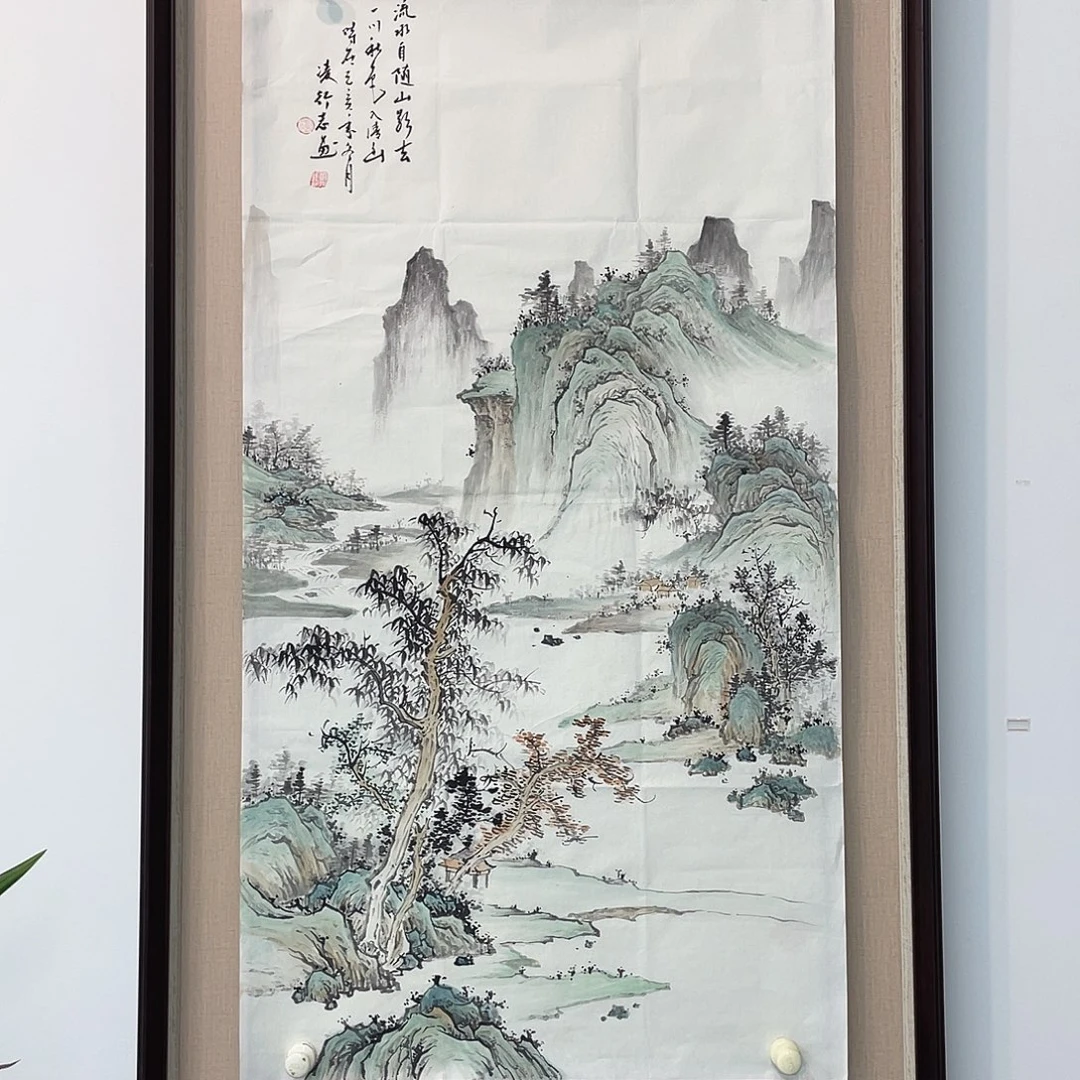 流水自随山影去
一川秋色入清山
時在己亥年冬月
凌竹志画